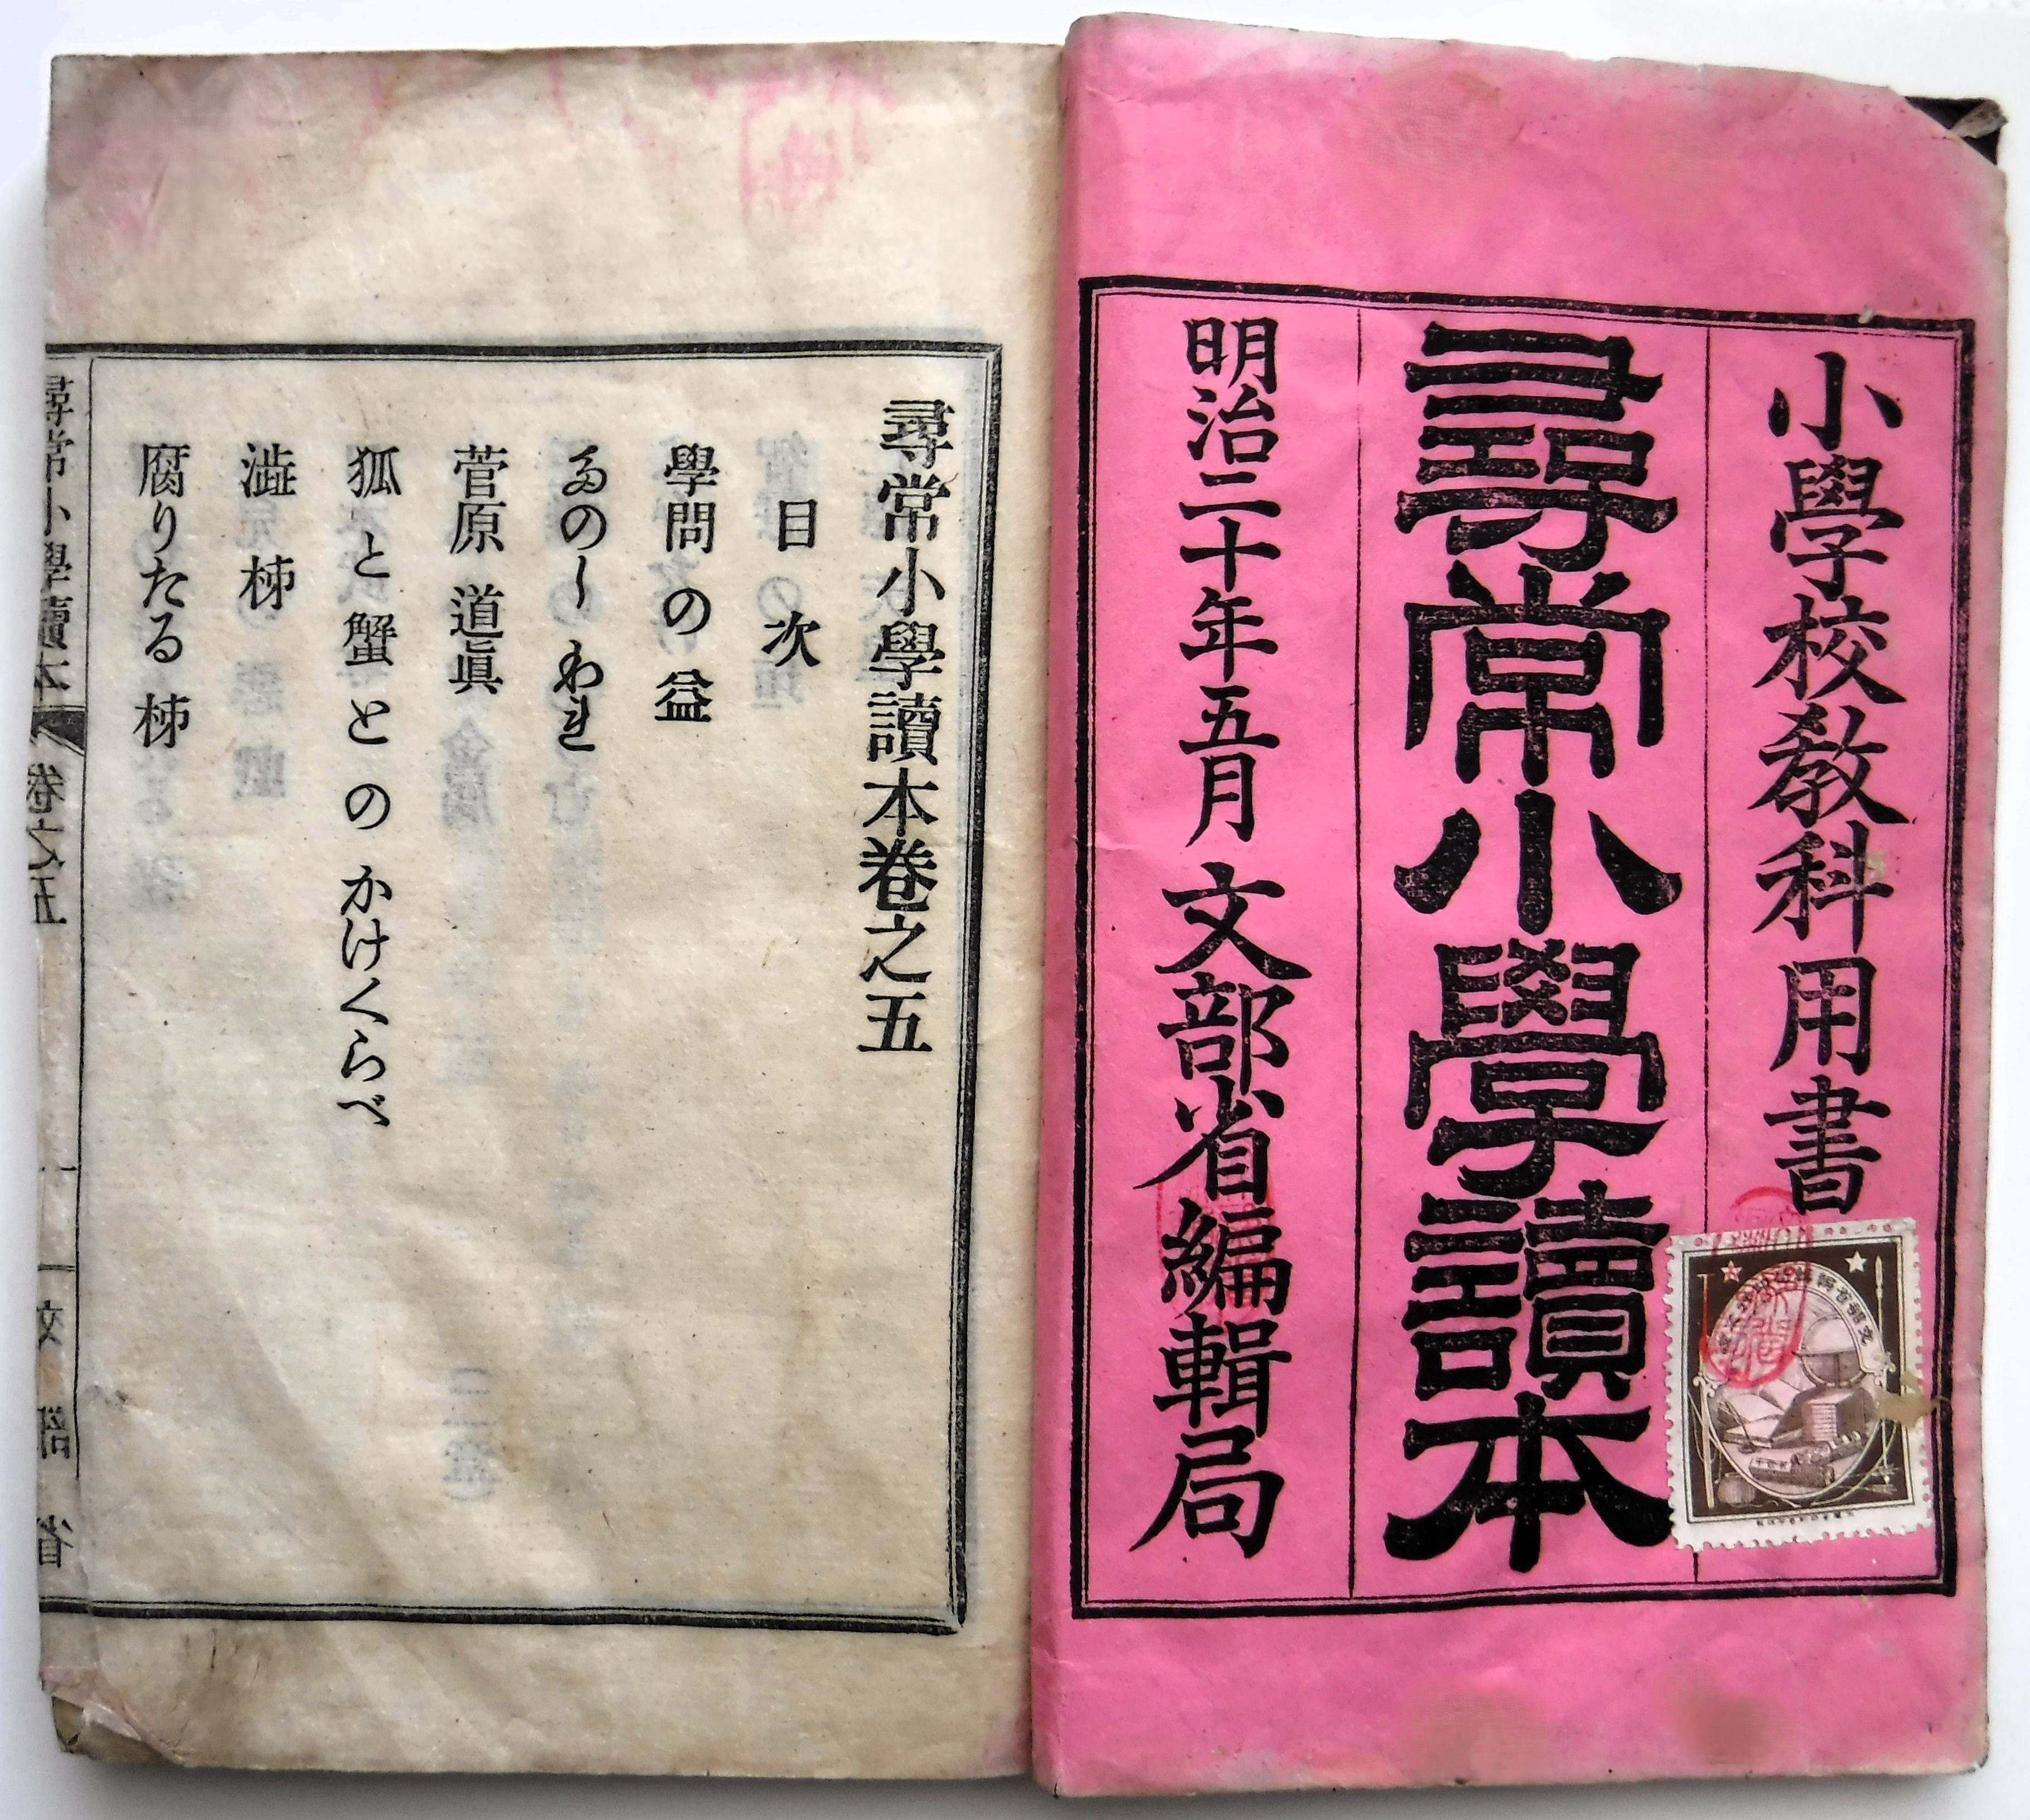 小學校敎科用書
尋常小學讀本
明治二十年五月 文部省編輯局
尋常小學讀本卷之五
目次
學問の益
たのしわれ
菅原道眞
狐と蟹とのかけくらべ
澁柹
腐りたる柹
尋常小學讀本 卷之五 一 文部省